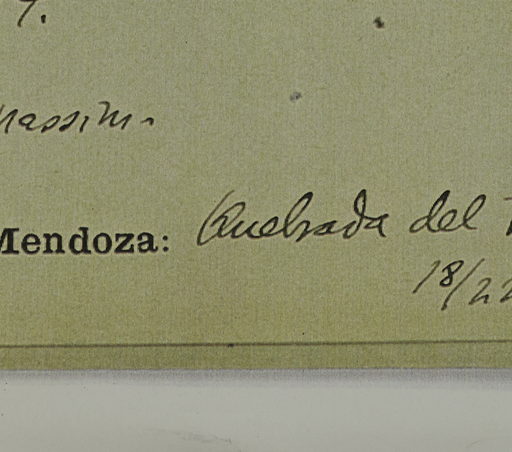 7.
massim.
Mendoza: Quebrada del
18/22